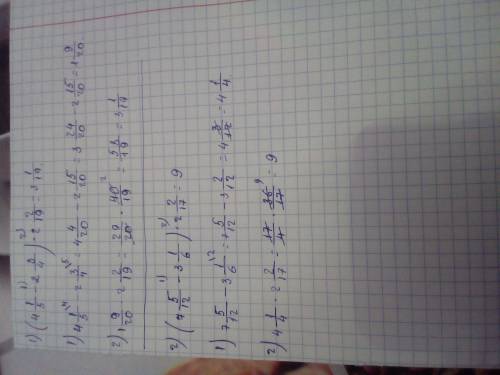 1) (4 1/5 - 2 3/4) · 2 2/19 = 3 1/19
1) 4 1/5 - 2 3/4 = 4 4/20 - 2 15/20 = 3 24/20 - 2 15/20 = 1 9/20
2) 1 9/20 · 2 2/19 = 29/20 · 40/19 = 58/19 = 3 1/19
2) (7 5/12 - 3 1/6) · 2 2/17 = 9
1) 7 5/12 - 3 1/6 = 7 5/12 - 3 2/12 = 4 3/12 = 4 1/4
2) 4 1/4 · 2 2/17 = 17/4 · 36/17 = 9